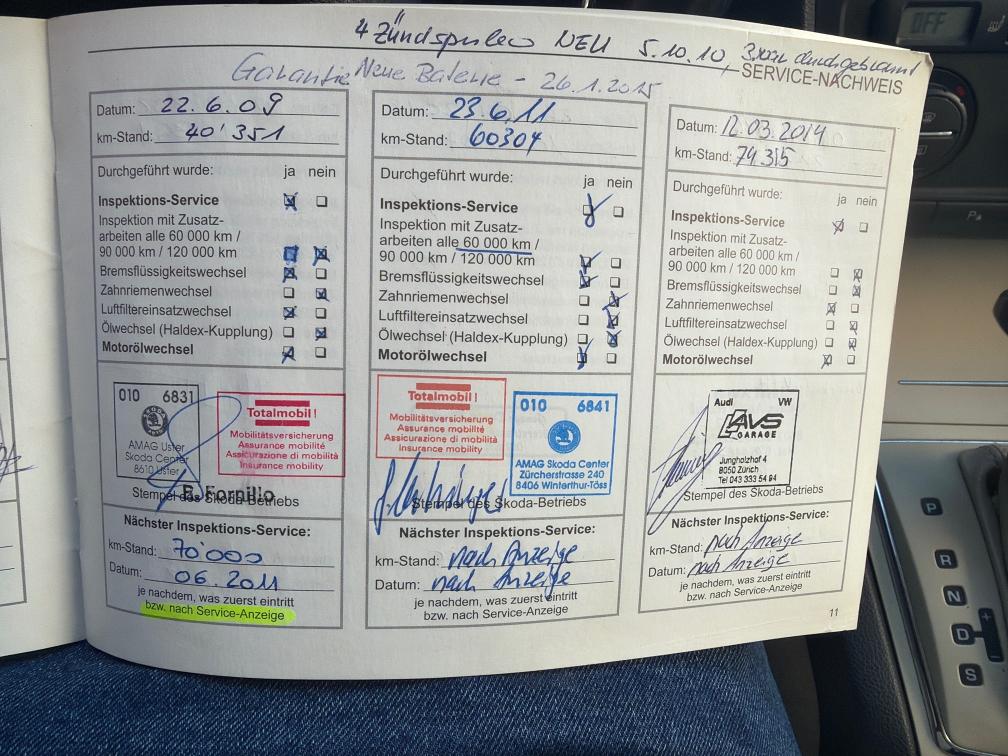 4 Zündspulen NEU 5.10.10, 3xxx durchgebrannt
SERVICE-NACHWEIS
Garantie Neue Baterie - 26.1.2015
Datum: 22.6.09
km-Stand: 40'351
Durchgeführt wurde: ja nein
Inspektions-Service
Inspektion mit Zusatz-
arbeiten alle 60 000 km /
90 000 km / 120 000 km
Bremsflüssigkeitswechsel
Zahnriemenwechsel
Luftfiltereinsatzwechsel
Ölwechsel (Haldex-Kupplung)
Motorölwechsel
010 6831
AMAG Uster
Skoda Center
8610 Uster
Totalmobil!
Mobilitätsversicherung
Assurance mobilité
Assicurazione di mobilità
Insurance mobility
E. Fornilio
Stempel des Skoda-Betriebs
Nächster Inspektions-Service:
km-Stand: 70'000
Datum: 06.2011
je nachdem, was zuerst eintritt
bzw. nach Service-Anzeige
Datum: 23.6.11
km-Stand: 60304
Durchgeführt wurde:
ja nein
Inspektions-Service
Inspektion mit Zusatz-
arbeiten alle 60 000 km /
90 000 km / 120 000 km
Bremsflüssigkeitswechsel
Zahnriemenwechsel
Luftfiltereinsatzwechsel
Ölwechsel (Haldex-Kupplung)
Motorölwechsel
Totalmobil!
Mobilitätsversicherung
Assurance mobilité
Assicurazione di mobilità
Insurance mobility
010 6841
AMAG Skoda Center
Zürcherstrasse 240
8406 Winterthur-Töss
Stempel des Skoda-Betriebs
Nächster Inspektions-Service:
km-Stand: nach Anzeige
Datum: nach Anzeige
je nachdem, was zuerst eintritt
bzw. nach Service-Anzeige
Datum: 12.03.2014
km-Stand: 74315
Durchgeführt wurde:
ja nein
Inspektions-Service
Inspektion mit Zusatz-
arbeiten alle 60 000 km /
90 000 km / 120 000 km
Bremsflüssigkeitswechsel
Zahnriemenwechsel
Luftfiltereinsatzwechsel
Ölwechsel (Haldex-Kupplung)
Motorölwechsel
Audi VW
AVS
GARAGE
Jungholzhof 4
8050 Zürich
Tel 043 333 54 94
Stempel des Skoda-Betriebs
Nächster Inspektions-Service:
km-Stand: nach Anzeige
Datum: nach Anzeige
je nachdem, was zuerst eintritt
bzw. nach Service-Anzeige
11
OFF
P
R
N
D
S
+